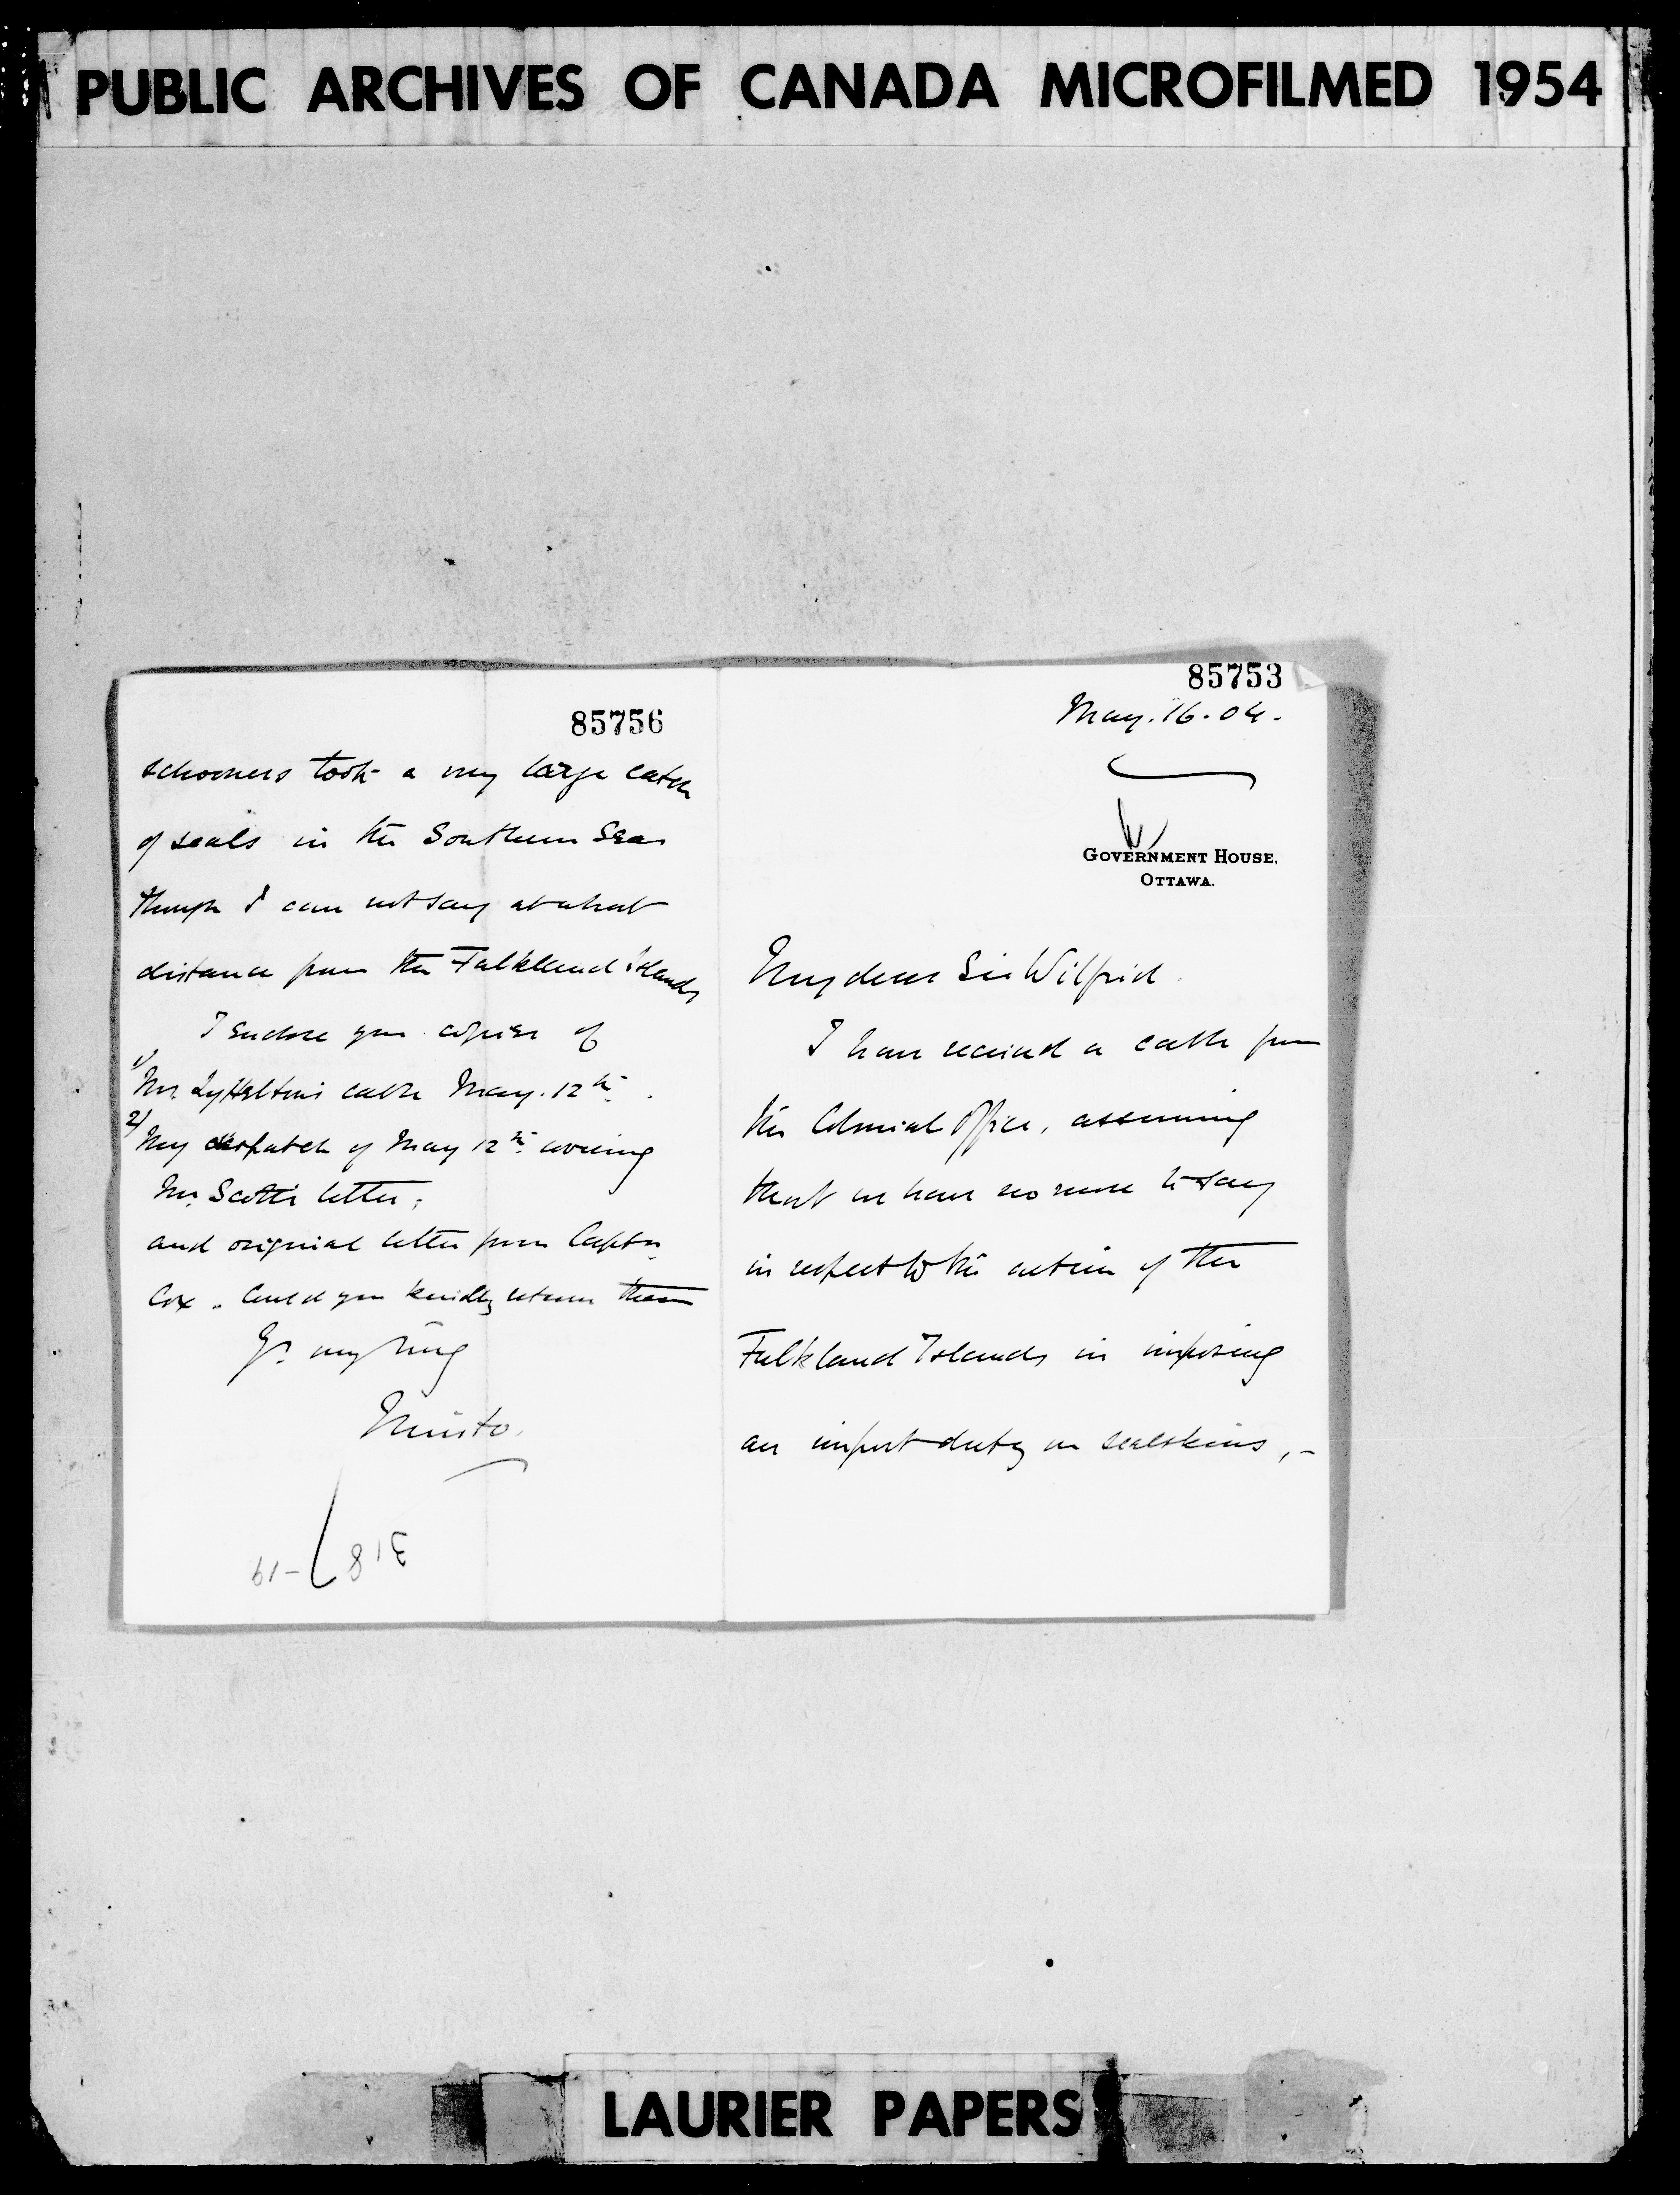 PUBLIC ARCHIVES OF CANADA MICROFILMED 1954
85756
schooners took a very large catch
of seals in the Southern Sea
though I can not say at what
distance from the Falkland Islands
I enclose you copies of
1) Mr. Lyttelton's cable May. 12th.
2) My despatch of May 12th. covering
Mr. Scott's letter;
and original letter from Captn.
Cox. Could you kindly return them
Yrs. very truly
Minto.
318
-19
85753
May. 16. 04.
W
GOVERNMENT HOUSE,
OTTAWA.
My dear Sir Wilfrid
I have received a cable from
the Colonial Office, assuming
that we have no more to say
in respect to the action of the
Falkland Islands in imposing
an import duty on sealskins,-
LAURIER PAPERS